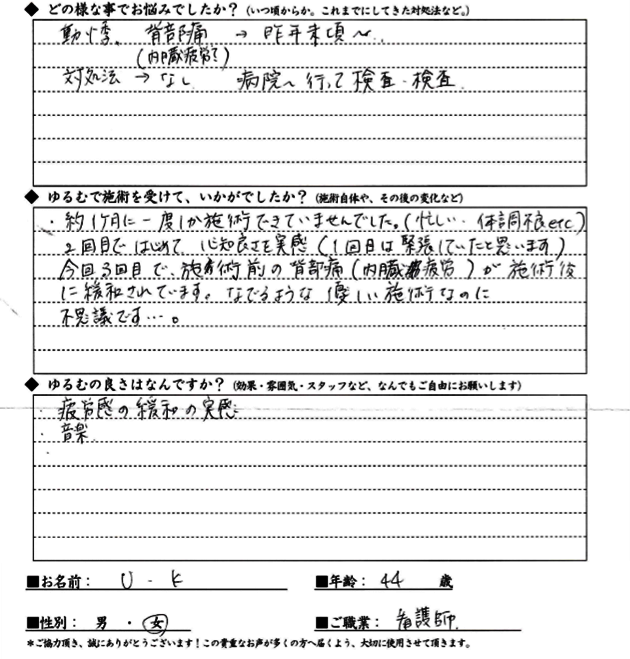 ◆ どの様な事でお悩みでしたか？（いつ頃からか。これまでにしてきた対処法など。）
動悸。 背部痛 → 昨年末頃～..
（内臓疲労？）
対処法 → なし 病院へ行って検査・検査
◆ ゆるむで施術を受けて、いかがでしたか？（施術自体や、その後の変化など）
・約1ヶ月に一度しか施術できていませんでした。（忙しい・体調不良etc）
2回目ではじめて心知良さを実感（1回目は緊張していたと思います）
今回3回目で、施術前の背部痛（内臓疲労）が施術後
に緩和されています。なでるような優しい施術なのに
不思議です…。
◆ ゆるむの良さはなんですか？（効果・雰囲気・スタッフなど、なんでもご自由にお願いします）
・疲労感の緩和の実感
・音楽
・
■お名前： U - K ■年齢： 44 歳
■性別： 男 ・ 女 ■ご職業： 看護師
＊ご協力頂き、誠にありがとうございます！この貴重なお声が多くの方へ届くよう、大切に使用させて頂きます。